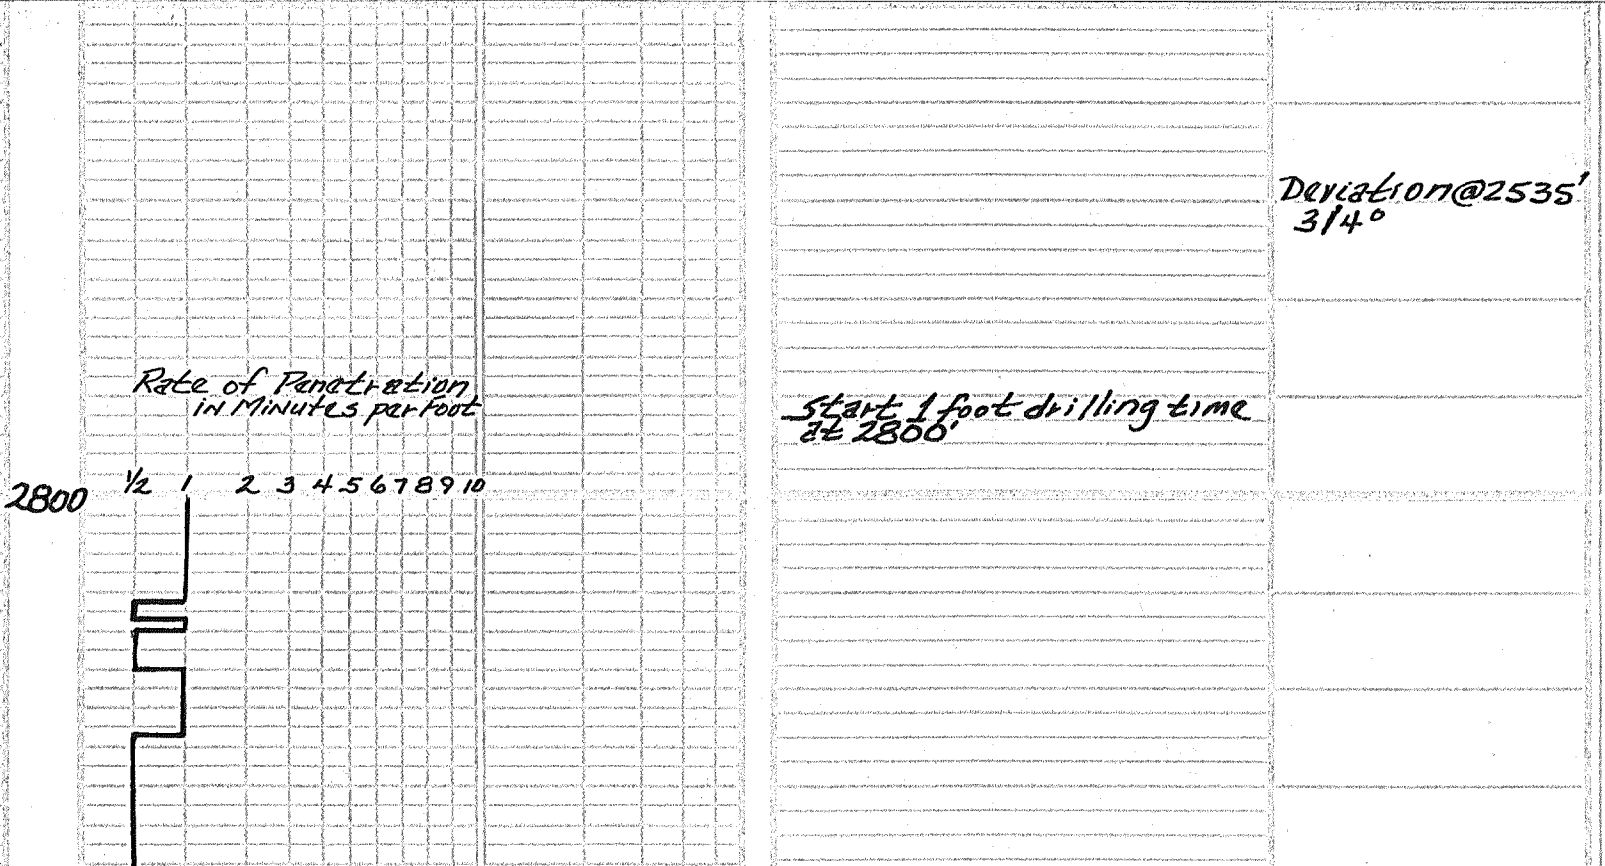 Deviation@2535'
3/4°
Rate of Penetration
in Minutes per Foot
Start 1 foot drilling time
at 2800'
1/2 1 2 3 4 5 6 7 8 9 10
2800